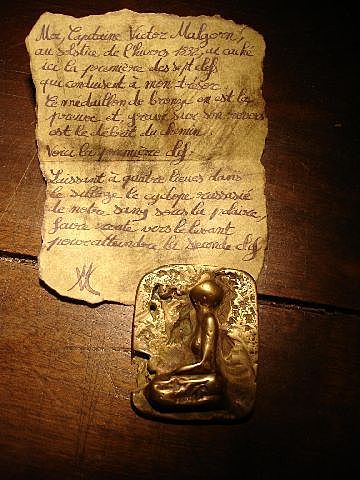 Moi, Capitaine Victor Malgorn,
au solstice de l'hivers 1832, ai caché
ici la première des sept clefs
qui conduisent à mon trésor
Ce médaillon de bronze en est la
preuve et gravé sur son revers
est le début du chemin
Voici la première clef:
laissant à quatre lieues dans
le sillage le cyclope rassasié
de notre sang sous la
vers le levant
pour atteindre la seconde clef
VM